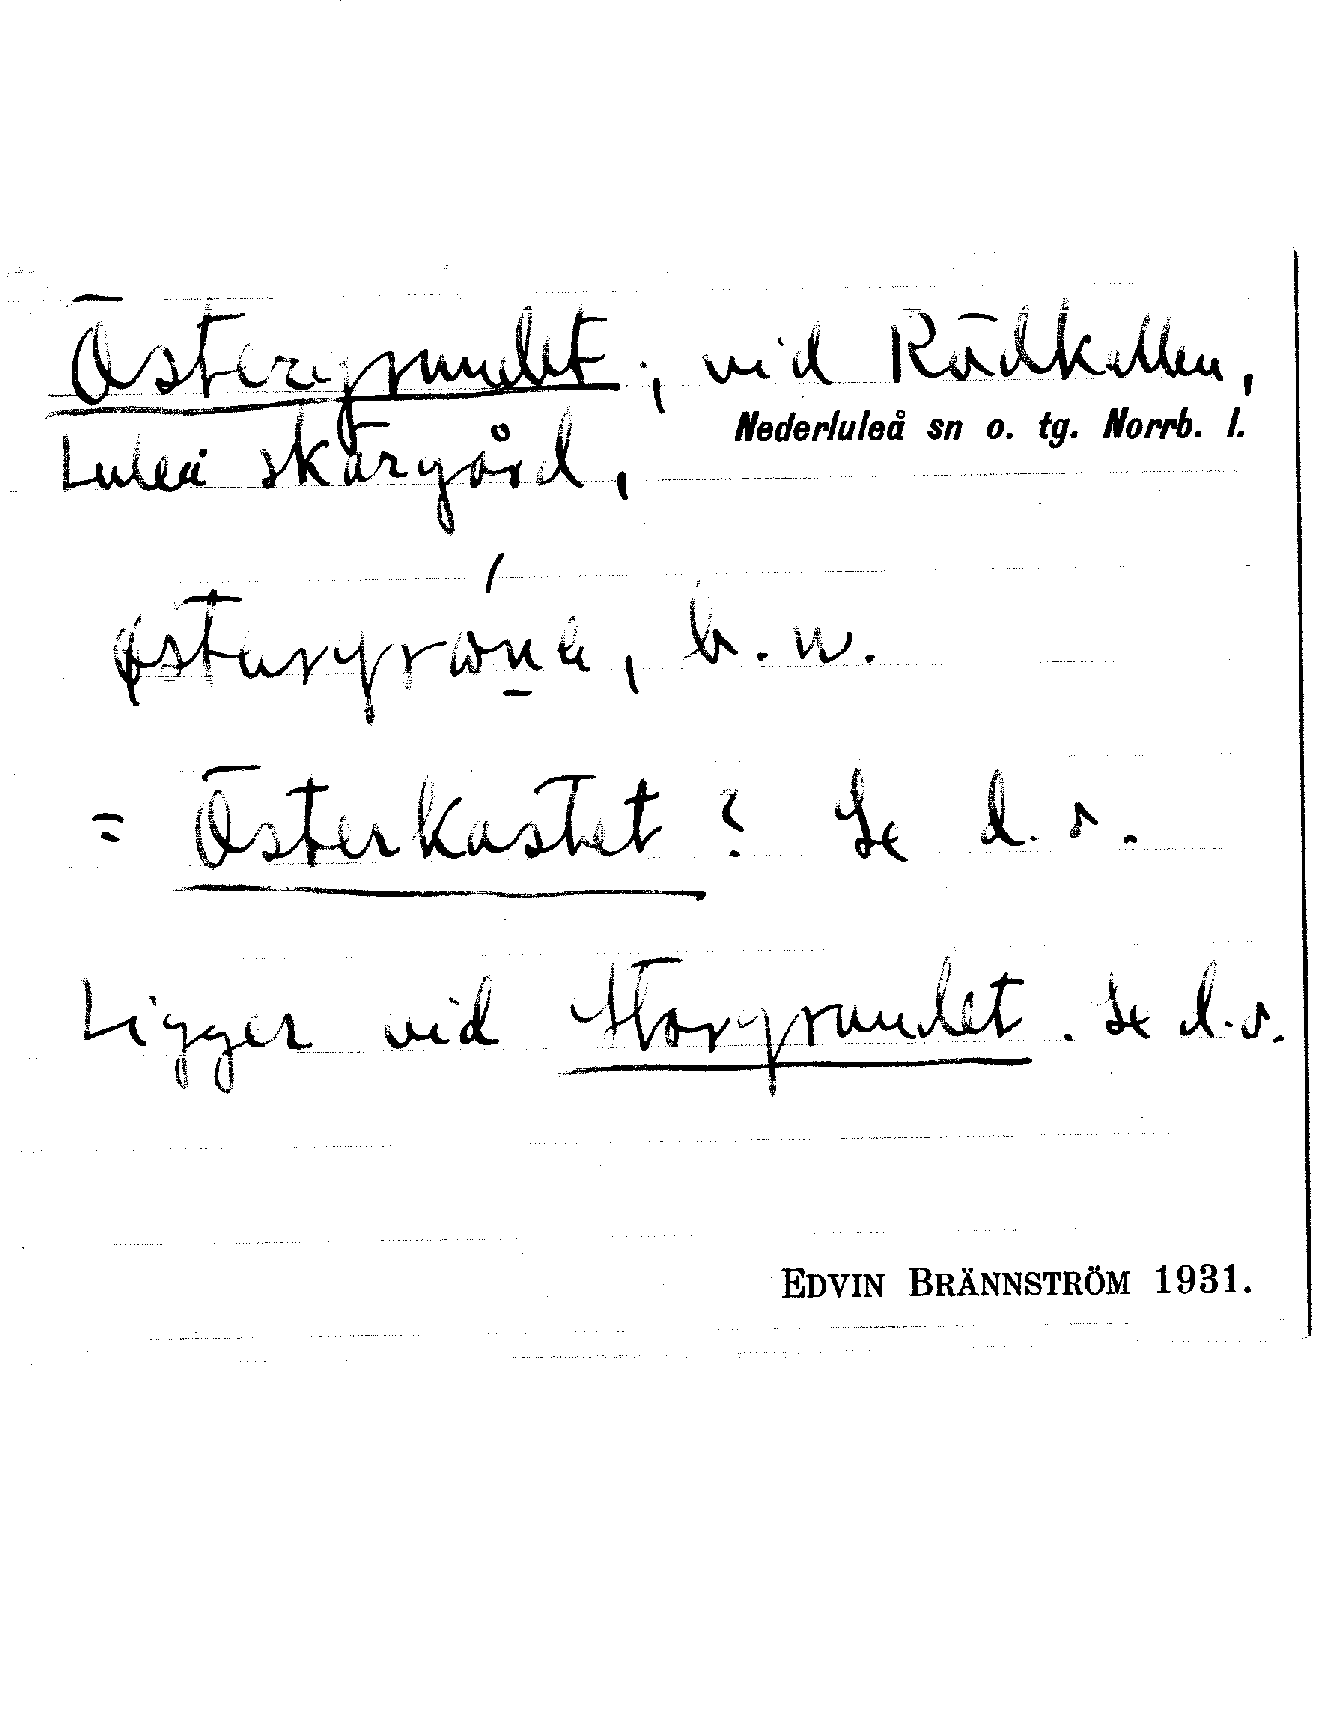 Östergrundet, vid Rödkallen,
Nederluleå sn o. tg. Norrb. l.
Luleå skärgård,
b. n.
= Österkastet? Se d. o.
Ligger vid Storgrundet. Se d. o.
EDVIN BRÄNNSTRÖM 1931.